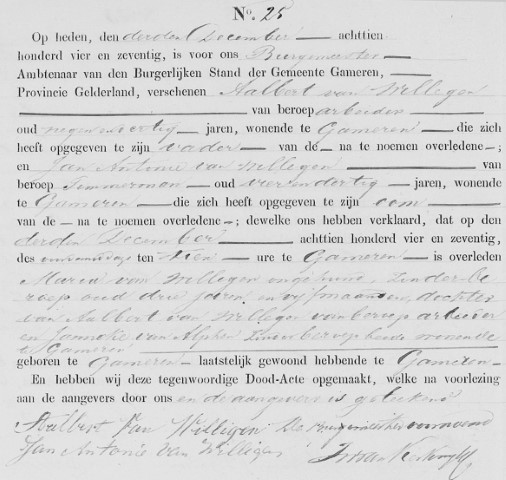 No. 25
Op heden, den derden December achttien
honderd vier en zeventig, is voor ons Burgemeester
Ambtenaar van den Burgerlijken Stand der Gemeente Gameren,
Provincie Gelderland, verschenen Aalbert van Willegen
van beroep arbeider
oud negen en dertig jaren, wonende te Gameren die zich
heeft opgegeven te zijn vader van de na te noemen overledene ;
en Jan Antonie van Willegen van
beroep Timmerman oud vier en dertig jaren, wonende
te Gameren die zich heeft opgegeven te zijn oom
van de na te noemen overledene ; dewelke ons hebben verklaard, dat op den
derden December achttien honderd vier en zeventig,
des ten tien ure te Gameren is overleden
Maria van Willegen ongehuwd, zonder be
roep oud drie jaren en vijf maanden, dochter
van Aalbert van Willegen van beroep arbeider
en Jannetje van Alphen zonder beroep beide wonende
te Gameren
geboren te Gameren laatstelijk gewoond hebbende te Gameren
En hebben wij deze tegenwoordige Dood-Acte opgemaakt, welke na voorlezing
aan de aangevers door ons en de aangevers is geteekend
Aalbert Van Willigen De Burgemeester voornoemd
Jan Antonie van Willigen